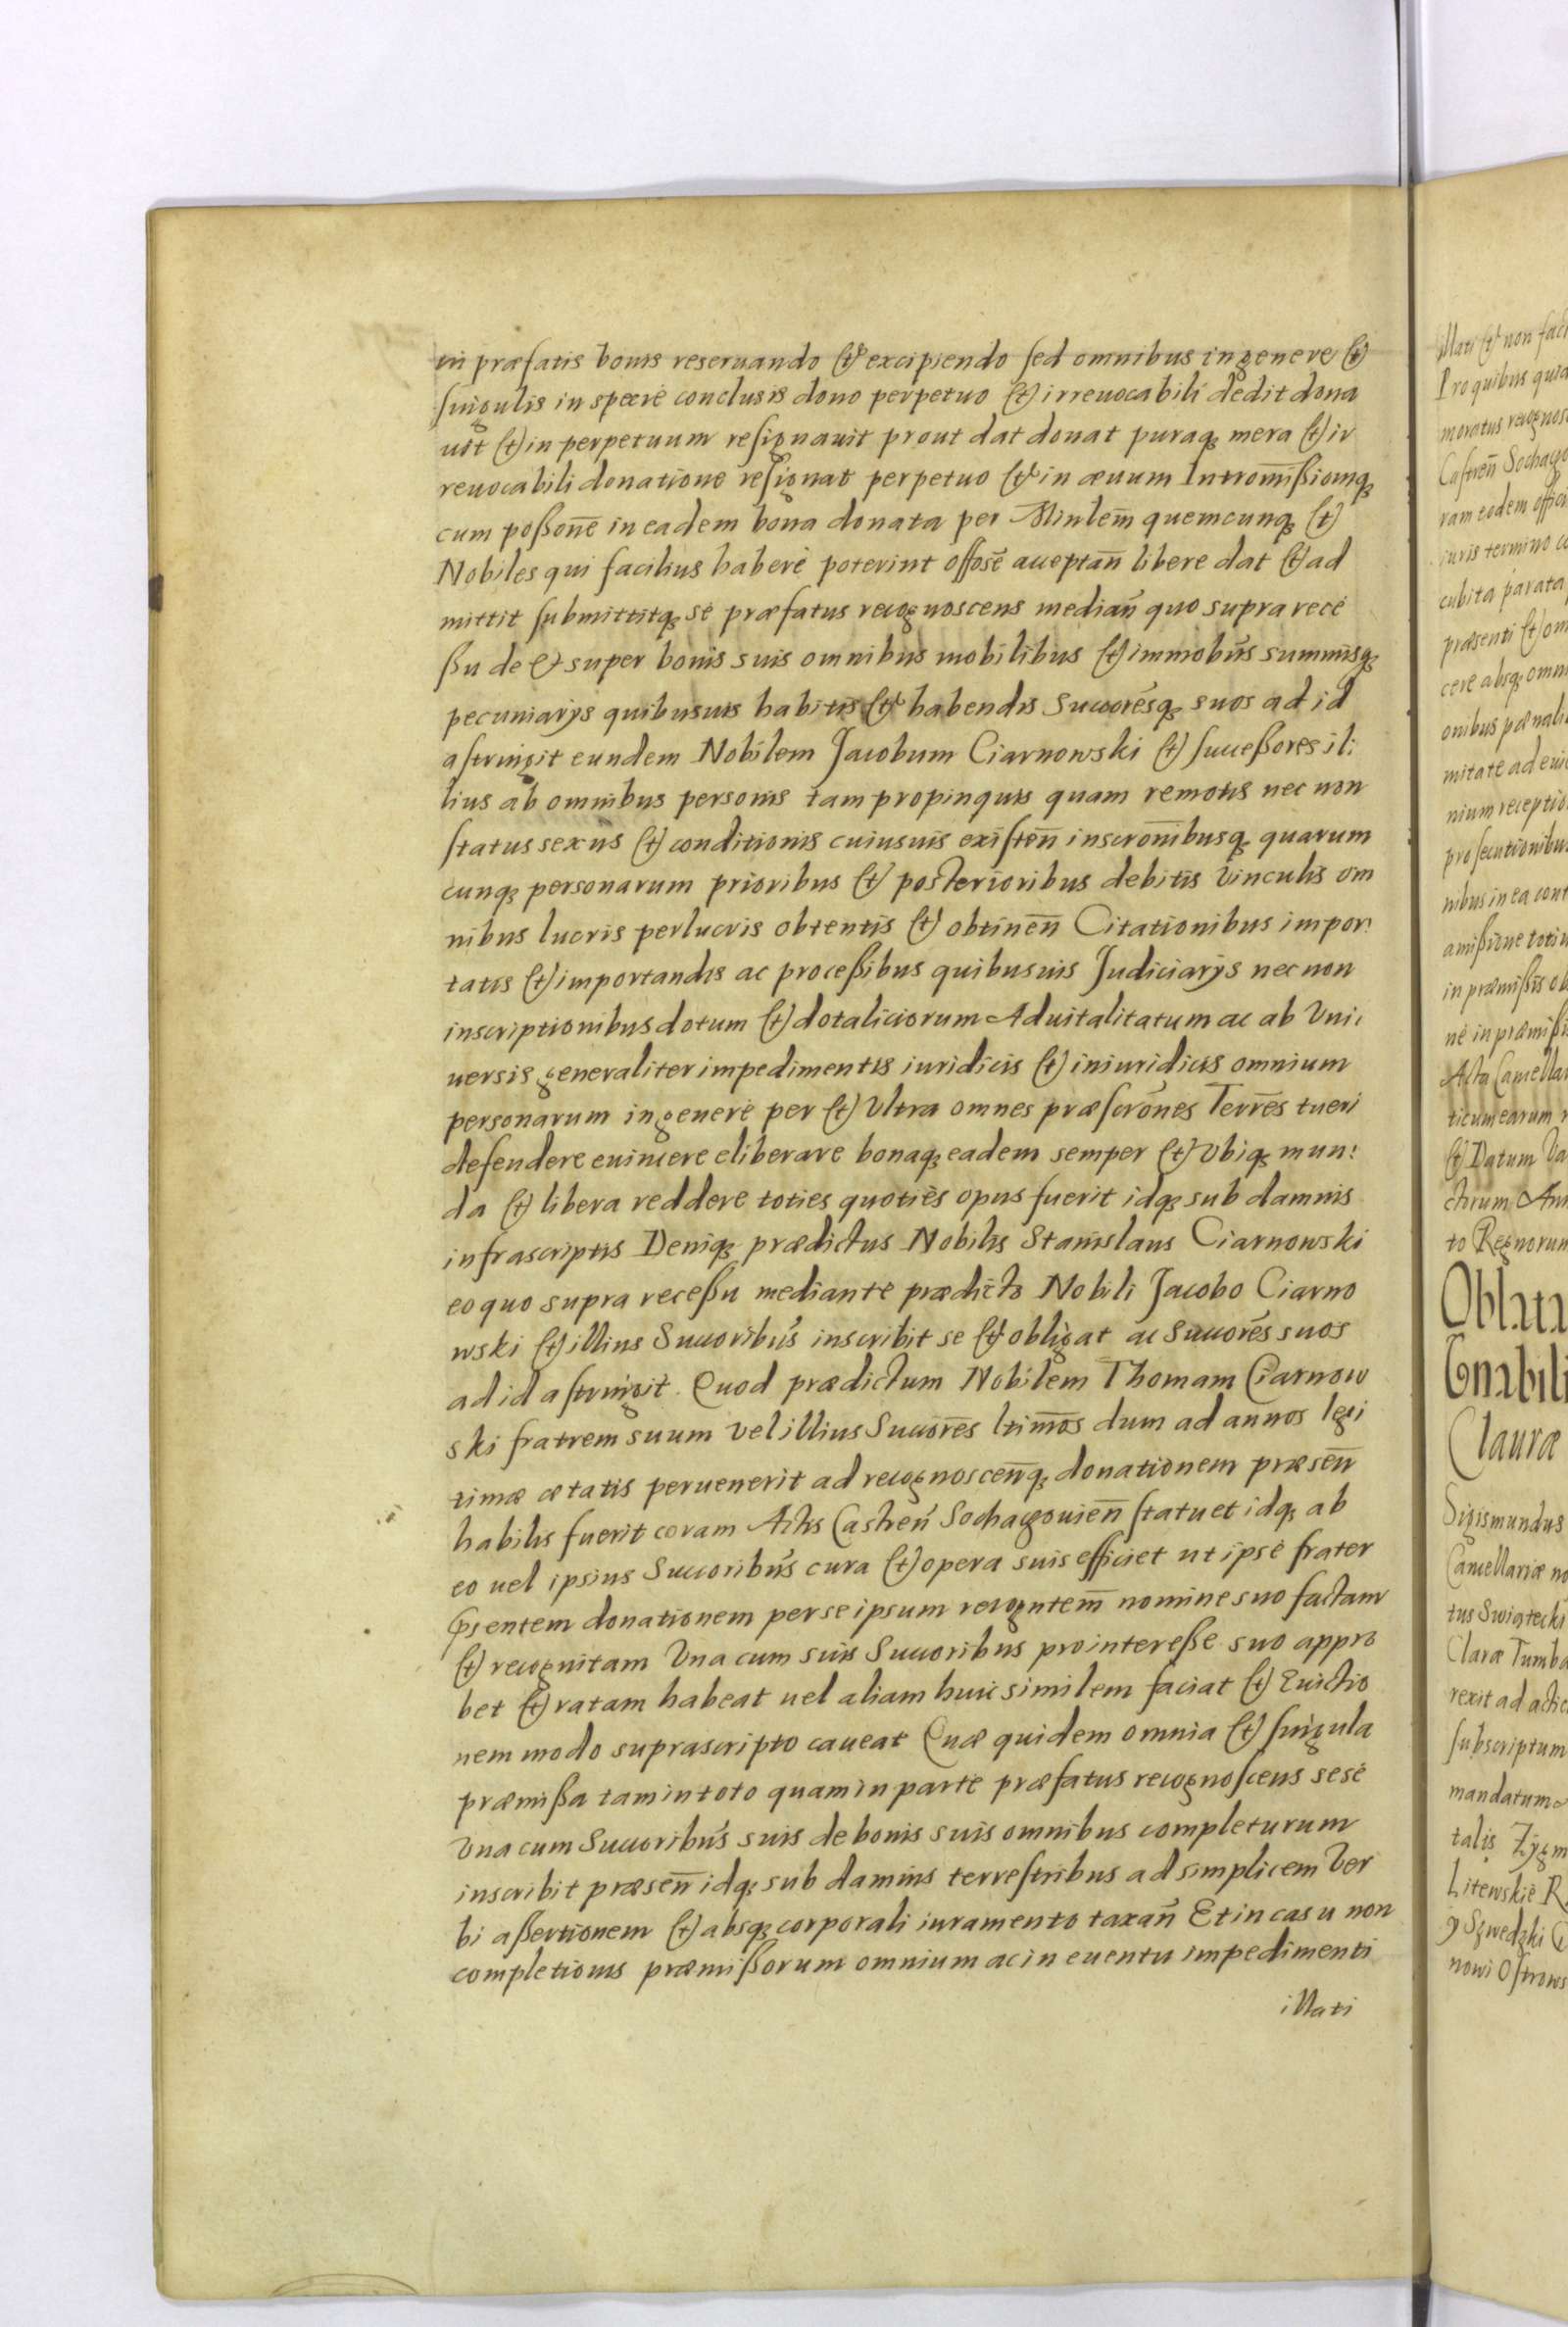 in præfatis bonis reseruando et excipiendo sed omnibus in genere et
singulis in specie conclusis dono perpetuo et irreuocabili dedit dona
uit et in perpetuum resignauit prout dat donat puraqꝫ mera et ir
reuocabili donatione resignat perpetuo et in æuum Intromißionqꝫ
cum poßone̅ in eadem bona donata per Minlem̅ quemcunqꝫ et
Nobiles qui facilius habere poterint offose̅ acceptan̅ libere dat et ad
mittit submittitqꝫ se præfatus recognoscens median̅ quo supra rece
ßu de et super bonis suis omnibus mobilibus et immobu̅s summisqꝫ
pecuniarys quibusuis habitis et habendis Succore̅sqꝫ suos ad id
astringit eundem Nobilem Jacobum Ciarnowski et succeßores il:
lius ab omnibus personis tam propinquis quam remotis nec non
status sexus et conditionis cuiusuis existen̅ inscron̅ibusqꝫ quarum
cunqꝫ personarum prioribus et posterioribus debitis Vinculis om
nibus lucris perlucris obtentis et obtinen̅ Citationibus impor:
tatis et importandis ac proceßibus quibusuis Judiciarys nec non
inscriptionibus dotum et dotaliciorum Aduitalitatum ac ab Vni:
uersis generaliter impedimentis iuridicis et iniuridicis omnium
personarum in genere per et Vltra omnes præscro̅nes Terre̅s tueri
defendere euincere eliberare bonaqꝫ eadem semper et Vbiqꝫ mun:
da et libera reddere toties quoties opus fuerit idqꝫ sub damnis
infrascriptis Deniqꝫ prædictus Nobilis Stanislaus Ciarnowski
eo quo supra receßu mediante prædicto Nobili Jacobo Ciarno
wski et illius Succoribu̅s inscribit se et obligat ac Succore̅s suos
ad id astringit. Quod prædictum Nobilem Thomam Ciarnow
ski fratrem suum Vel illius Succore̅s ltimo̅s dum ad annos legi
timæ ætatis peruenerit ad recognoscen̅qꝫ donationem præsen̅
habilis fuerit coram Actis Castren̅ Sochaczouien̅ statuet idqꝫ ab
eo uel ipsius Succoribu̅s cura et opera suis efficiet ut ipse frater
p̅sentem donationem per se ipsum recogntem̅ nomine suo factam
et recognitam Vna cum suis Succoribus pro intereße suo appro
bet et ratam habeat uel aliam huic similem faciat et Euictio
nem modo suprascripto caueat Quæ quidem omnia et singula
præmißa tam in toto quam in parte præfatus recognoscens sese
Vna cum Succoribu̅s suis de bonis suis omnibus completurum
inscribit præsen̅ idqꝫ sub damnis terrestribus ad simplicem Ver
bi aßertionem et absqꝫ corporali iuramento taxan̅ Et in casu non
completionis præmißorum omnium ac in euentu impedimenti
illati
illati et non faci
Pro quibus quid
moratus recognos
Castren̅ Sochaczo
ram eodem offici
iuris termino
cubita parata
præsenti et om
cere absqꝫ omn
onibus pænali
mitate ad eui
nium receptio
prosecutionibus
nibus in ea cont
amißione totiu
in præmißis ob
ne in præmißi
Acta Cancellar
ticum earum
et Datum Va
ctorum Ann
to Regnorum
Oblata
Gnabili
Claræ
Sigismundus
Cancellariæ no
tus Swiatecki
Claræ Tumba
rexit ad actic
subscriptum
mandatum
talis Zygm
Litewskie R
y Szwedzki
nowi Ostrows